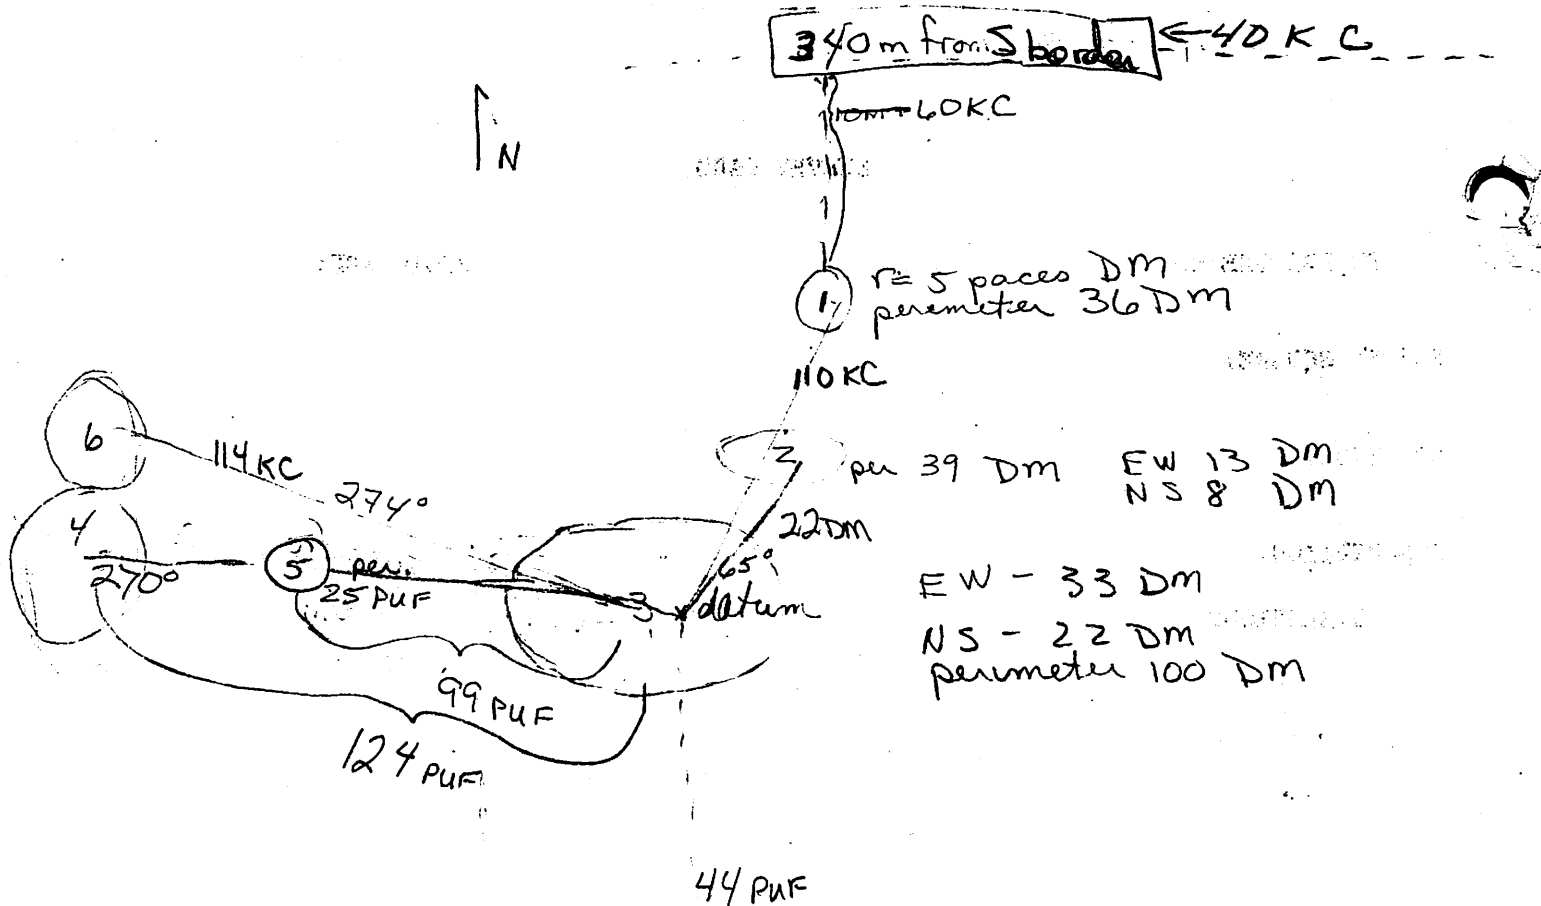 340m from S border ← 40 KC
60KC
N
1 r= 5 paces DM
perimeter 36 DM
110 KC
6
114 KC
274°
2 per 39 DM EW 13 DM
NS 8 DM
22 DM
4
270°
5 per.
25 PUF
65°
3 datum
EW - 33 DM
NS - 22 DM
perimeter 100 DM
99 PUF
124 PUF
44 PUF